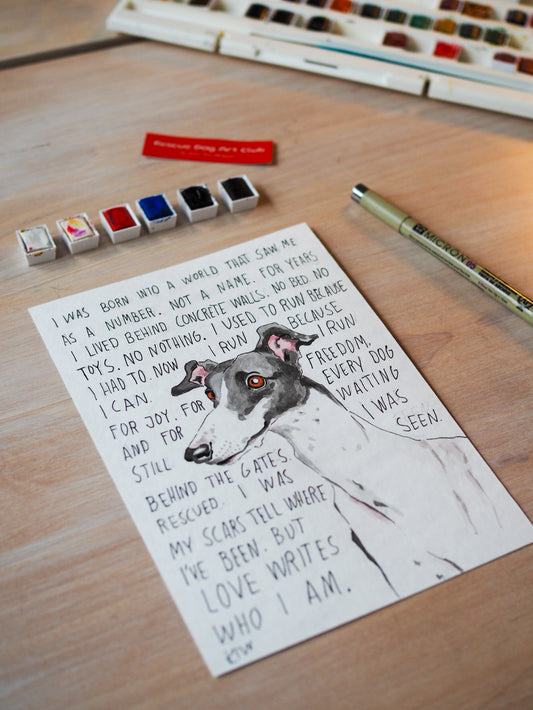 Rescue Dog Art Club
MICRON
I WAS BORN INTO A WORLD THAT SAW ME
AS A NUMBER. NOT A NAME. FOR YEARS
I LIVED BEHIND CONCRETE WALLS. NO BED. NO
TOYS. NO NOTHING. I USED TO RUN BECAUSE
I HAD TO. NOW I RUN BECAUSE
I CAN. I RUN
FOR JOY. FOR FREEDOM.
AND FOR EVERY DOG
STILL WAITING
BEHIND THE GATES. I WAS
RESCUED. I WAS SEEN.
MY SCARS TELL WHERE
I'VE BEEN. BUT
LOVE WRITES
WHO I AM.